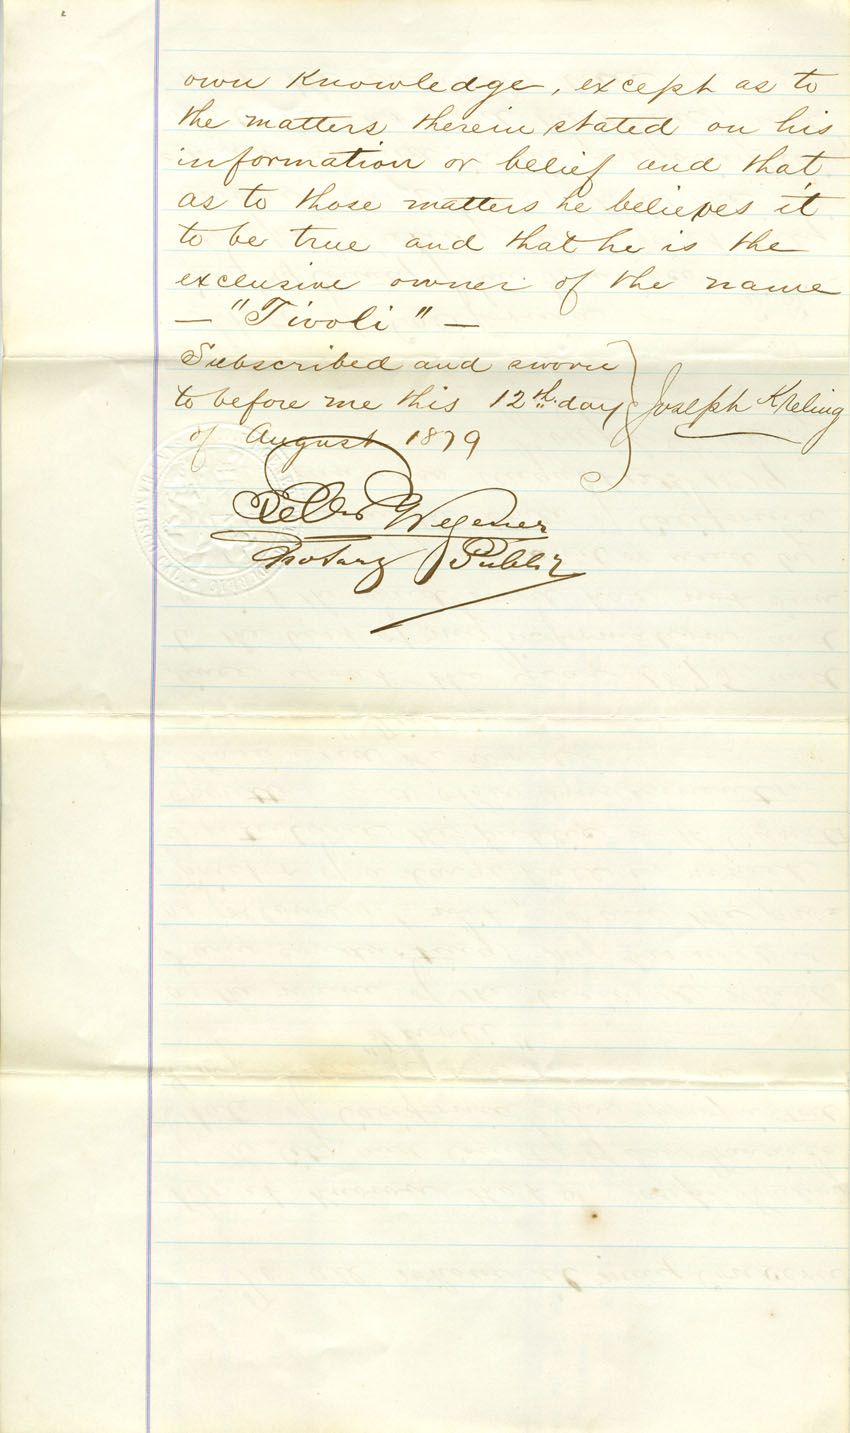 own Knowledge, except as to
the matters therein stated on his
information or belief and that
as to those matters he believes it
to be true and that he is the
exclusive owner of the name
— "Tivoli" —
Subscribed and sworn
to before me this 12th. day
of August 1879
Joseph Kreling
Wegener
Notary Public